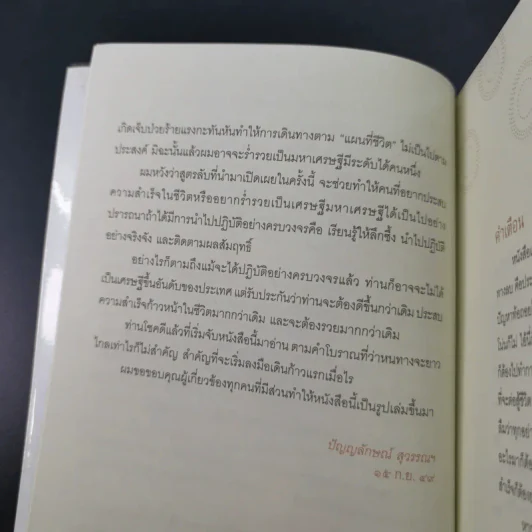 เกิดเจ็บป่วยร้ายแรงกะทันหันทำให้การเดินทางตาม "แผนที่ชีวิต" ไม่เป็นไปตาม
ประสงค์ มิฉะนั้นแล้วผมอาจจะร่ำรวยเป็นมหาเศรษฐีมีระดับได้คนหนึ่ง
ผมหวังว่าสูตรลับที่นำมาเปิดเผยในครั้งนี้ จะช่วยทำให้คนที่อยากประสบ
ความสำเร็จในชีวิตหรืออยากร่ำรวยเป็นเศรษฐีมหาเศรษฐีได้เป็นไปอย่าง
ปรารถนาถ้าได้มีการนำไปปฏิบัติอย่างครบวงจรคือ เรียนรู้ให้ลึกซึ้ง นำไปปฏิบัติ
อย่างจริงจัง และติดตามผลสัมฤทธิ์
อย่างไรก็ตามถึงแม้จะได้ปฏิบัติอย่างครบวงจรแล้ว ท่านก็อาจจะไม่ได้
เป็นเศรษฐีขั้นอันดับของประเทศ แต่รับประกันว่าท่านจะต้องดีขึ้นกว่าเดิม ประสบ
ความสำเร็จก้าวหน้าในชีวิตมากกว่าเดิม และจะต้องรวยมากกว่าเดิม
ท่านโชคดีแล้วที่เริ่มจับหนังสือนี้มาอ่าน ตามคำโบราณที่ว่าหนทางจะยาว
ไกลเท่าไรก็ไม่สำคัญ สำคัญที่จะเริ่มลงมือเดินก้าวแรกเมื่อไร
ผมขอขอบคุณผู้เกี่ยวข้องทุกคนที่มีส่วนทำให้หนังสือนี้เป็นรูปเล่มขึ้นมา
ปัญญลักษณ์ สุวรรณฯ
๑๕ ก.ย. ๔๙
คำเตือน
หนังสือ